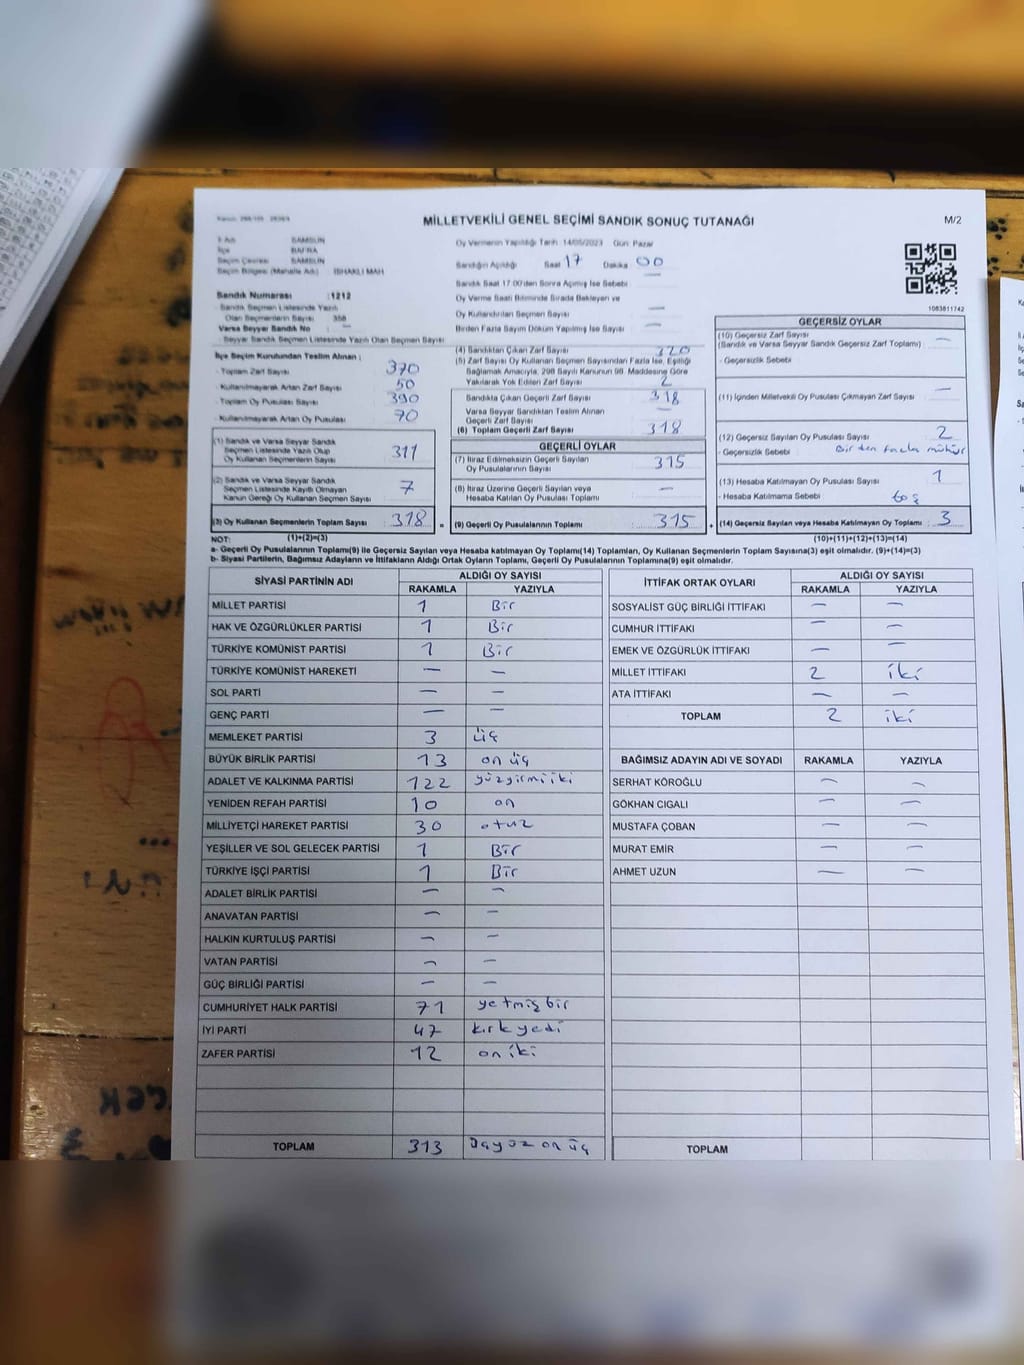 MİLLETVEKİLİ GENEL SEÇİMİ SANDIK SONUÇ TUTANAĞI
M/2
İl Adı SAMSUN
İlçe BAFRA
Seçim Çevresi SAMSUN
Seçim Bölgesi (Mahalle Adı) : İSHAKLI MAH
Sandık Numarası :1212
- Sandık Seçmen Listesinde Yazılı
Olan Seçmenlerin Sayısı 358
Varsa Seyyar Sandık No —
- Seyyar Sandık Seçmen Listesinde Yazılı Olan Seçmen Sayısı
Oy Vermenin Yapıldığı Tarih 14/05/2023 Gün: Pazar
Sandığın Açıldığı Saat 17 Dakika 00
Sandık Saat 17.00'den Sonra Açılmış İse Sebebi —
Oy Verme Saati Bitiminde Sırada Bekleyen ve
Oy Kullandırılan Seçmen Sayısı —
Birden Fazla Sayım Döküm Yapılmış İse Sayısı —
1083811742
İlçe Seçim Kurulundan Teslim Alınan ;
- Toplam Zarf Sayısı 370
- Kullanılmayarak Artan Zarf Sayısı 50
- Toplam Oy Pusulası Sayısı 390
- Kullanılmayarak Artan Oy Pusulası 70
(1) Sandık ve Varsa Seyyar Sandık
Seçmen Listesinde Yazılı Olup
Oy Kullanan Seçmenlerin Sayısı 311
(2) Sandık ve Varsa Seyyar Sandık
Seçmen Listesinde Kayıtlı Olmayan
Kanun Gereği Oy Kullanan Seçmen Sayısı 7
(3) Oy Kullanan Seçmenlerin Toplam Sayısı 318 =
(4) Sandıktan Çıkan Zarf Sayısı 320
(5) Zarf Sayısı Oy Kullanan Seçmen Sayısından Fazla İse, Eşitliği
Sağlamak Amacıyla, 298 Sayılı Kanunun 98. Maddesine Göre
Yakılarak Yok Edilen Zarf Sayısı 2
Sandıkta Çıkan Geçerli Zarf Sayısı 318
Varsa Seyyar Sandıktan Teslim Alınan
Geçerli Zarf Sayısı —
(6) Toplam Geçerli Zarf Sayısı 318
GEÇERLİ OYLAR
(7) İtiraz Edilmeksizin Geçerli Sayılan
Oy Pusulalarının Sayısı 315
(8) İtiraz Üzerine Geçerli Sayılan veya
Hesaba Katılan Oy Pusulası Toplamı —
(9) Geçerli Oy Pusulalarının Toplamı 315 +
GEÇERSİZ OYLAR
(10) Geçersiz Zarf Sayısı
(Sandık ve Varsa Seyyar Sandık Geçersiz Zarf Toplamı) —
- Geçersizlik Sebebi
(11) İçinden Milletvekili Oy Pusulası Çıkmayan Zarf Sayısı —
(12) Geçersiz Sayılan Oy Pusulası Sayısı 2
- Geçersizlik Sebebi Birden fazla mühür
(13) Hesaba Katılmayan Oy Pusulası Sayısı 1
- Hesaba Katılmama Sebebi boş
(14) Geçersiz Sayılan veya Hesaba Katılmayan Oy Toplamı 3
NOT: (1)+(2)=(3) (10)+(11)+(12)+(13)=(14)
a- Geçerli Oy Pusulalarının Toplamı(9) ile Geçersiz Sayılan veya Hesaba katılmayan Oy Toplamı(14) Toplamları, Oy Kullanan Seçmenlerin Toplam Sayısına(3) eşit olmalıdır. (9)+(14)=(3)
b- Siyasi Partilerin, Bağımsız Adayların ve İttifakların Aldığı Ortak Oyların Toplamı, Geçerli Oy Pusulalarının Toplamına(9) eşit olmalıdır.
SİYASİ PARTİNİN ADI ALDIĞI OY SAYISI
RAKAMLA YAZIYLA
MİLLET PARTİSİ 1 Bir
HAK VE ÖZGÜRLÜKLER PARTİSİ 1 Bir
TÜRKİYE KOMÜNİST PARTİSİ 1 Bir
TÜRKİYE KOMÜNİST HAREKETİ — —
SOL PARTİ — —
GENÇ PARTİ — —
MEMLEKET PARTİSİ 3 üç
BÜYÜK BİRLİK PARTİSİ 13 on üç
ADALET VE KALKINMA PARTİSİ 122 yüzyirmiiki
YENİDEN REFAH PARTİSİ 10 on
MİLLİYETÇİ HAREKET PARTİSİ 30 otuz
YEŞİLLER VE SOL GELECEK PARTİSİ 1 Bir
TÜRKİYE İŞÇİ PARTİSİ 1 Bir
ADALET BİRLİK PARTİSİ — —
ANAVATAN PARTİSİ — —
HALKIN KURTULUŞ PARTİSİ — —
VATAN PARTİSİ — —
GÜÇ BİRLİĞİ PARTİSİ — —
CUMHURİYET HALK PARTİSİ 71 yetmiş bir
İYİ PARTİ 47 kırk yedi
ZAFER PARTİSİ 12 on iki
TOPLAM 313 üçyüz on üç
İTTİFAK ORTAK OYLARI ALDIĞI OY SAYISI
RAKAMLA YAZIYLA
SOSYALİST GÜÇ BİRLİĞİ İTTİFAKI — —
CUMHUR İTTİFAKI — —
EMEK VE ÖZGÜRLÜK İTTİFAKI — —
MİLLET İTTİFAKI 2 iki
ATA İTTİFAKI — —
TOPLAM 2 iki
BAĞIMSIZ ADAYIN ADI VE SOYADI RAKAMLA YAZIYLA
SERHAT KÖROĞLU — —
GÖKHAN CIGALI — —
MUSTAFA ÇOBAN — —
MURAT EMİR — —
AHMET UZUN — —
TOPLAM